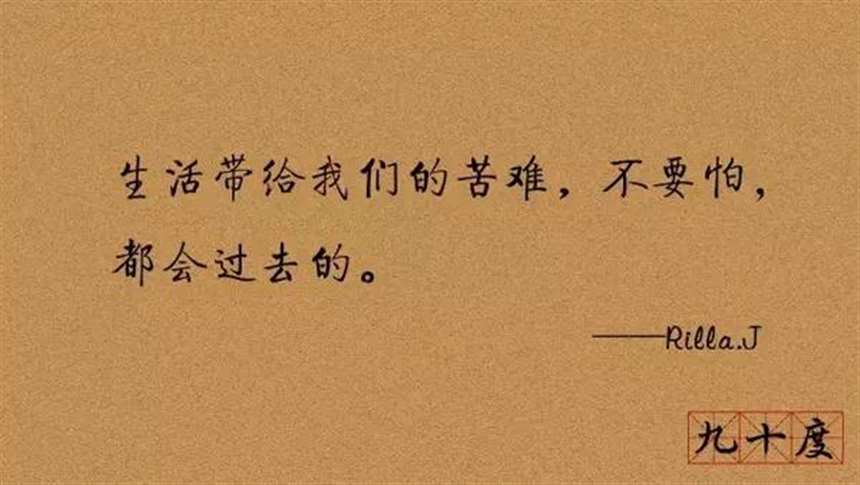 生活带给我们的苦难，不要怕，
都会过去的。
——Rilla.J
九十度